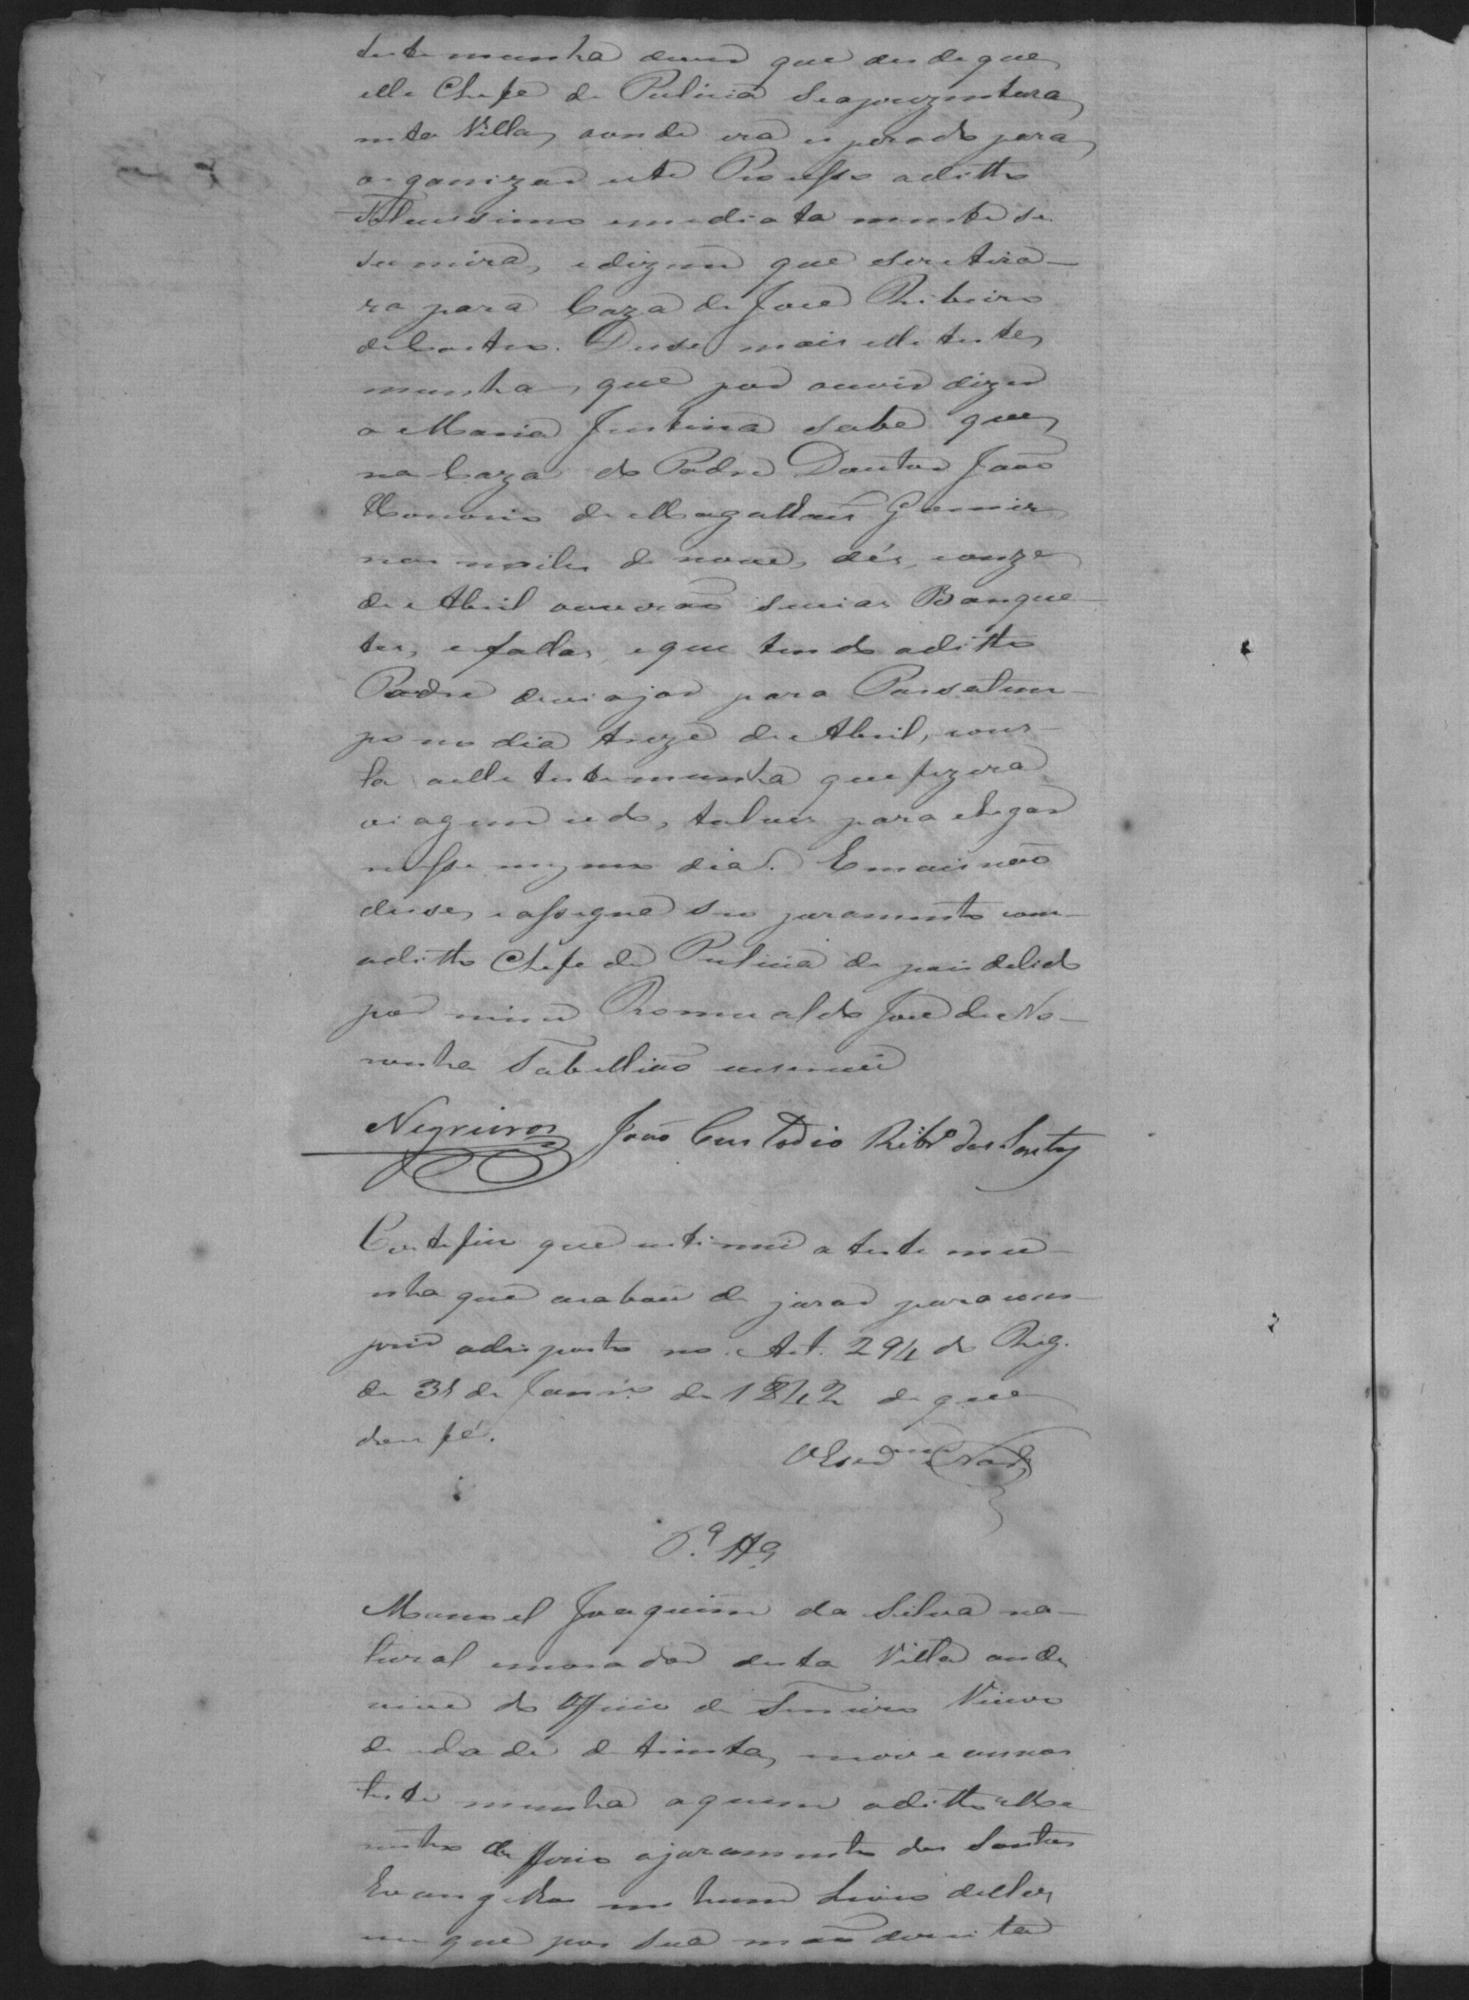 testemunha disse que des de que
elle Chefe de Pulicia se aprezentara
nesta Villa, aonde era esperado para
organizar este Processo o ditto
emediatamente se
sumira, e dizem que se retira-
ra para Caza de José Ribeiro
de Castro. Disse mais elle teste
munha, que por ouvir dizer
a Maria Justina sabe que
na Caza do Padre Doutor João
Honorio de Magalhães Gomes
nas noites de nove, dés, e onze
de Abril ouverão Banque-
tes, e que tendo o ditto
Padre de viajar para Passatem-
po no dia treze de Abril, cons-
ta a elle testemunha que fizera
viagem cedo, talves para chegar
nesse mezmo dia. E mais não
disse, e assigna seu juramento com
o ditto Chefe de Pulicia de pois de lido
por mim Romualdo José de No-
ronha Tabellião escrevi
Negreiros João Custodio Ribr.º dos Santos
Certifico que intimei a testemu-
nha que acabou de jurar para cum-
prir o disposto no Art. 294 do Reg.
de 31 de Janr.º de 1842 de que
dou fé.
6.ª Ta.
Manoel Joaquim da Silva na-
tural e morador desta Villa onde
vive do Officio de Viuvo
de idade de trinta, e nove annos
testemunha a quem o ditto Me-
nistro differio o juramento dos Santos
Evangelhos em hum Livro delles,
em que por sua mão direita